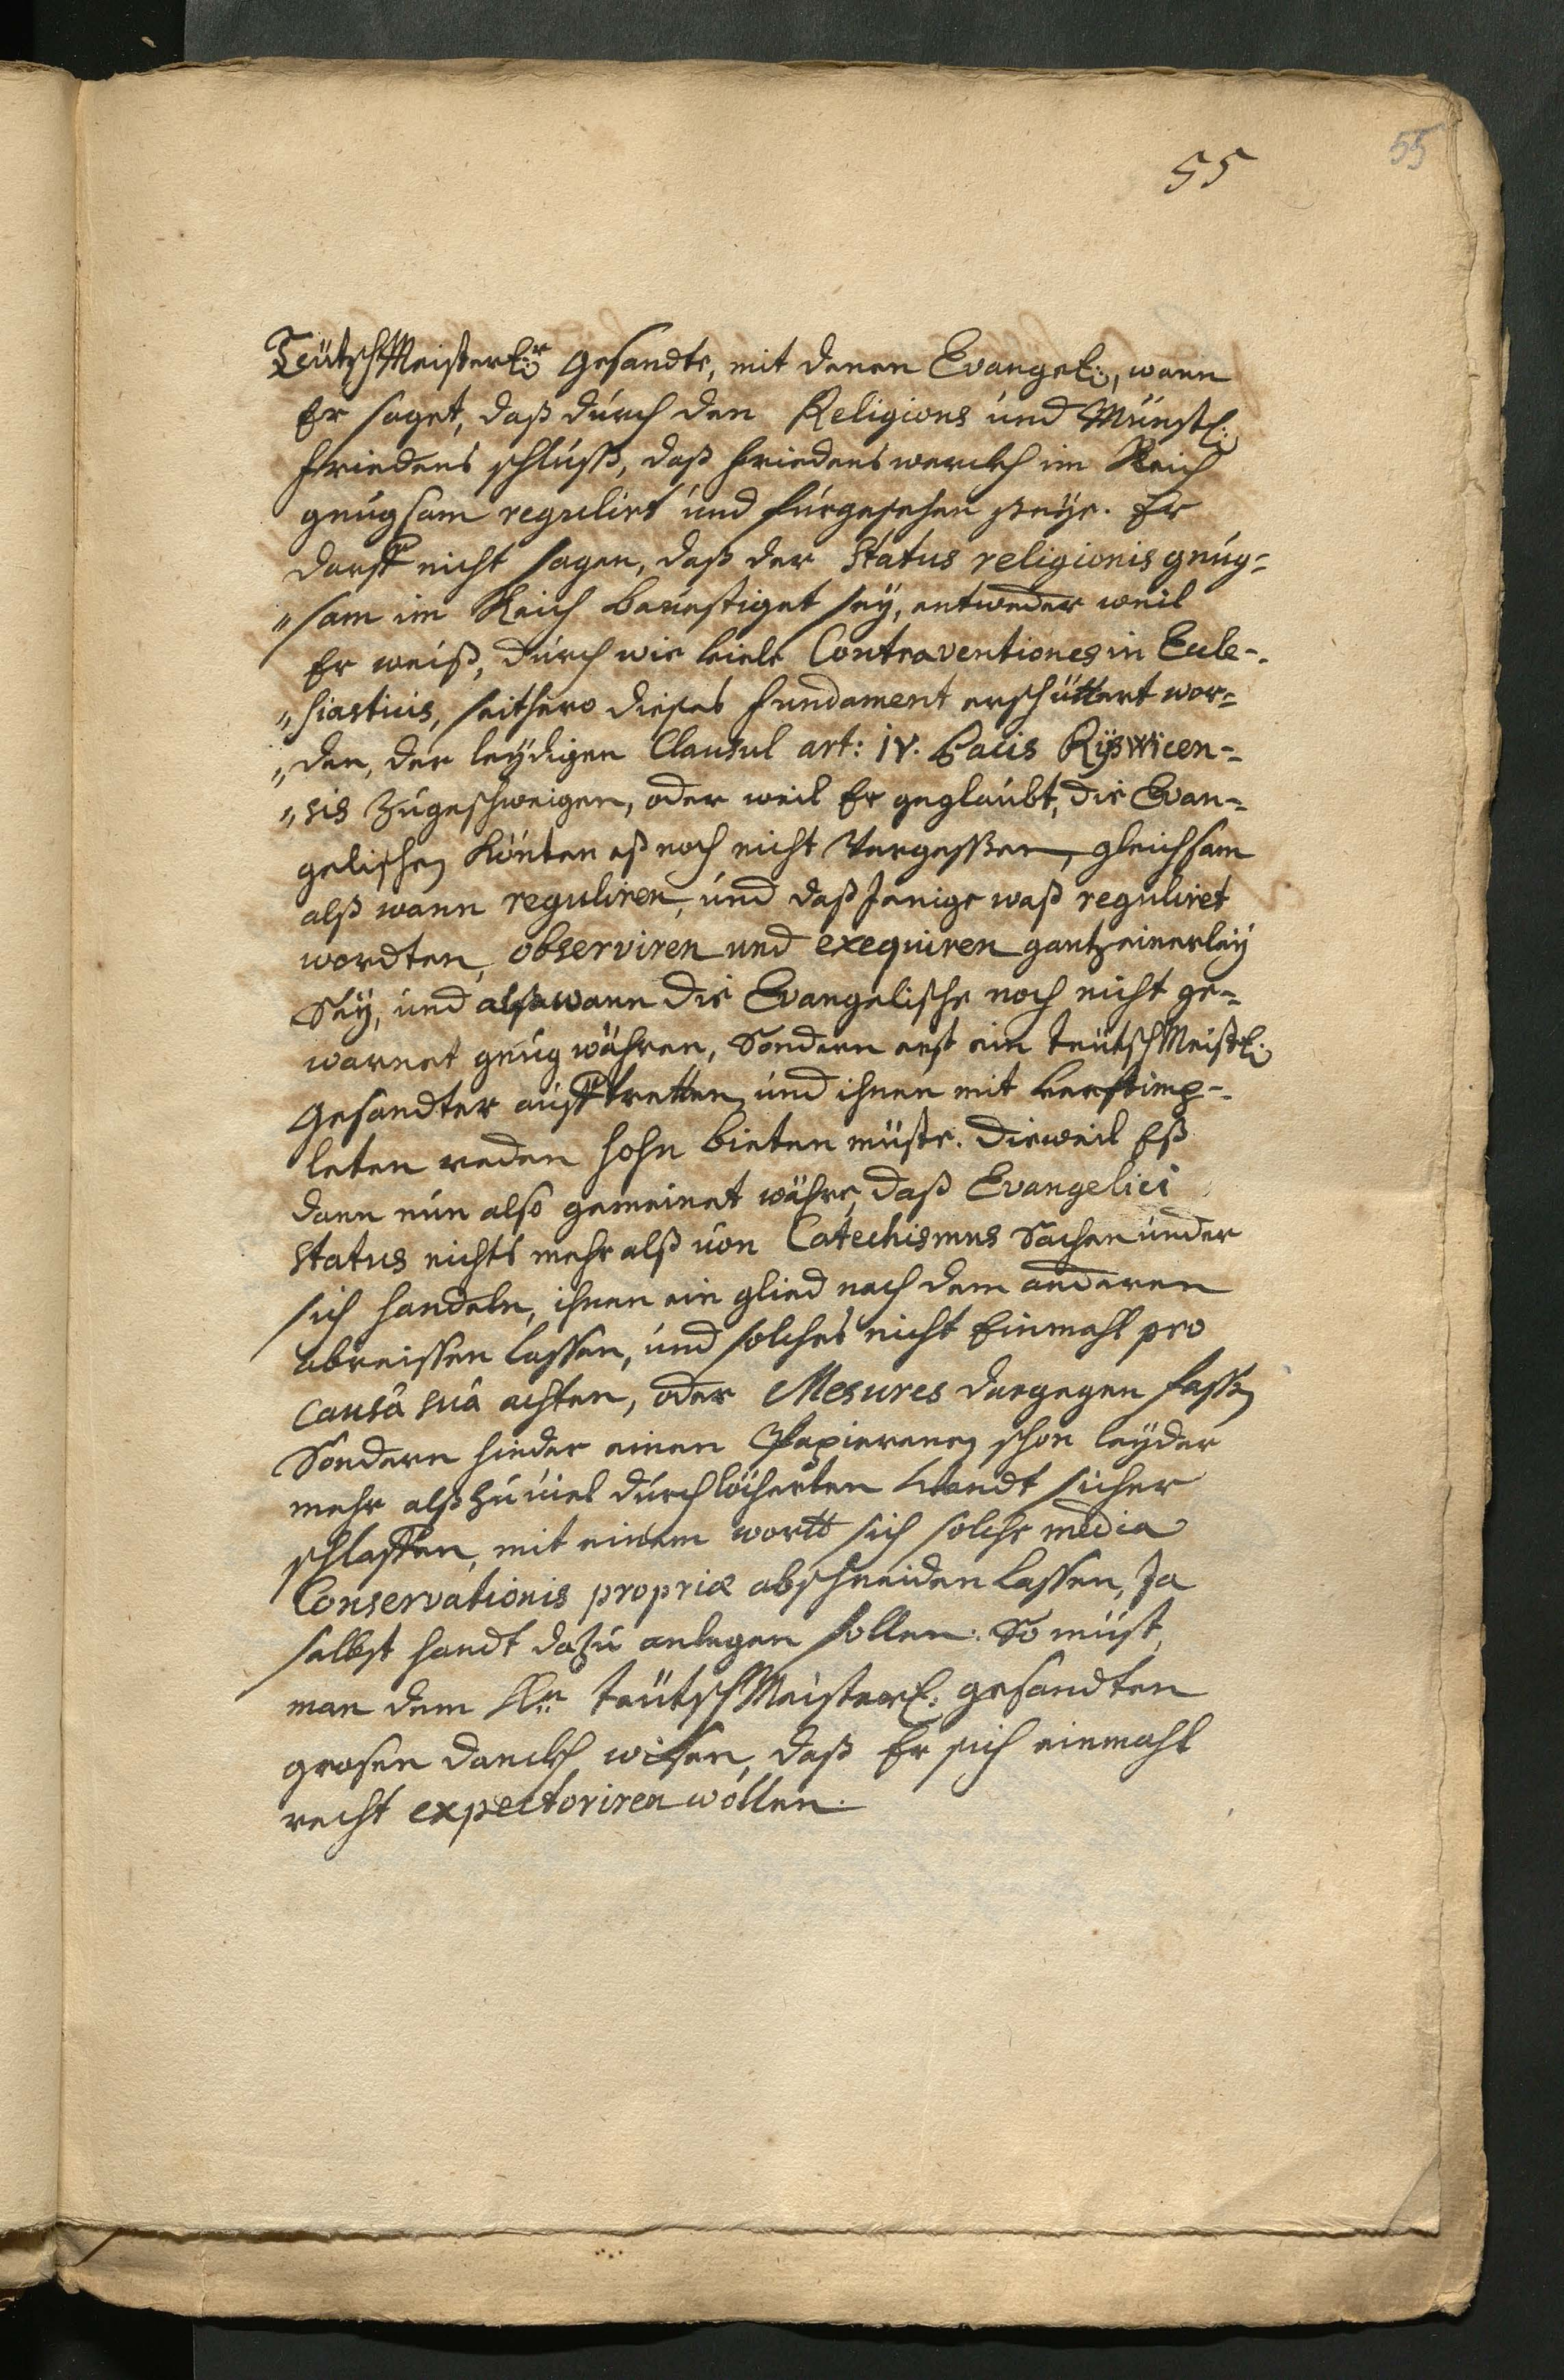 55
55
TeütschMeisterl:r Gesandte, mit denen Evangel:, wann
Er saget, daß durch den Religions und Münstl:
friedens schluß, daß friedenswerckh im Reich
gnugsam regulirt und fürgesehen seye. Er
darff nicht sagen, daß der Status religionis gnug-
„sam im Reich bevestiget sey, entweder weil
Er weiß, durch wie viele Contraventiones in Eccle-
„siasticis, seithero dieses fundament erschüttert wor-
„den, der leydigen Clausul art: IV. Pacis Ryswicen-
„sis zugeschweigen, oder weil Er geglaubt, die Evan-
gelischen könten eß noch nicht Vergessen, gleichsam
alß wann reguliren, und daßJenige waß reguliret
wordten, observiren und exequiren gantz einerley
Sey, und alß wann die Evangelische noch nicht ge-
warnet gnug währen, Sondern erst ein TeütschMeistl:
Gesandter aufftretten und ihnen mit
leten reden hohn bieten müste. dieweil Eß
dann nun also gemeinet währe, daß Evangelici
Status nichts mehr alß von Catechismus Sachen under
sich handeln, ihnen ein glied nach dem anderen
abreissen lassen, und solches nicht Einmahl pro
causâ suâ achten, oder Mesures dargegen fassen
Sondern hinder einen Papierenen schon leyder
mehr alß zu viel durchlöcherten Wandt sicher
schlaffen, mit einem wortt sich solche media
Conservationis propriæ abschneiden lassen, Ja
selbst handt dazu anlegen sollen. So müst
man dem Hn TeütschMeisterl: gesandten
grosen danckh wissen, daß Er sich einmahl
recht expectoriren wollen.